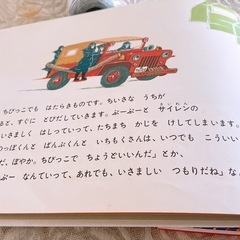 ちびっこでも はたらきものです。ちいさな うちが
と、すぐに とびだしていきます。ぷーぷーと サイレンの
いさましく はしっていって、たちまち かじを けしてしまいます。
のっぽくんと ばんぷくんと いちもくさんは、いつでも こういい
だ、ぼやか。ちびっこで ちょうどいいんだ」とか、
ぷー なんていって、あれでも、いさましい つもりだね」な